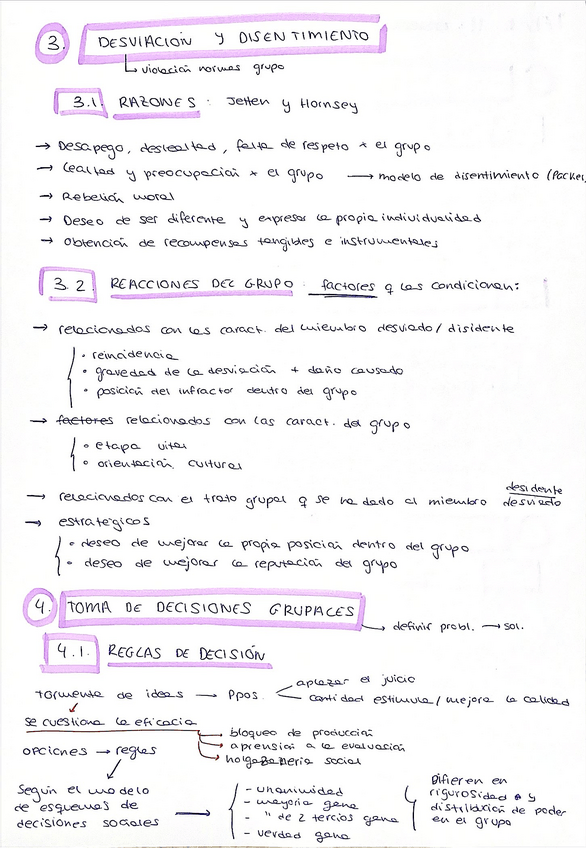 3. DESVIACION Y DISENTIMIENTO
violación normas grupo
3.1. RAZONES: Jetten y Hornsey
→ Desapego, deslealtad, falta de respeto x el grupo
→ Lealtad y preocupación x el grupo → modelo de disentimiento (Packer,
→ Rebelión moral
→ Deseo de ser diferente y expresar la propia individualidad
→ Obtención de recompensas tangibles e instrumentales
3.2 REACCIONES DEL GRUPO factores q las condicionan:
→ relacionados con las caract. del miembro desviado/disidente
• reincidencia
• gravedad de la desviación + daño causado
• posición del infractor dentro del grupo
→ factores relacionados con las caract. del grupo
• etapa vital
• orientación cultural
→ relacionados con el trato grupal q se ha dado al miembro desidente desviado
→ estratégicos
• deseo de mejorar la propia posición dentro del grupo
• deseo de mejorar la reputación del grupo
4. TOMA DE DECISIONES GRUPALES
definir probl. → sol.
4.1. REGLAS DE DECISIÓN
tormenta de ideas → Ppos.
aplazar el juicio
cantidad estimula/mejora la calidad
se cuestiona la eficacia
bloqueo de producción
aprensión a la evaluación
holgazanería social
opciones → reglas
Según el modelo
de esquemas de
decisiones sociales →
- unanimidad
- mayoría gana
- " de 2 tercios gana
- verdad gana
Difieren en
rigurosidad y
distribución de poder
en el grupo